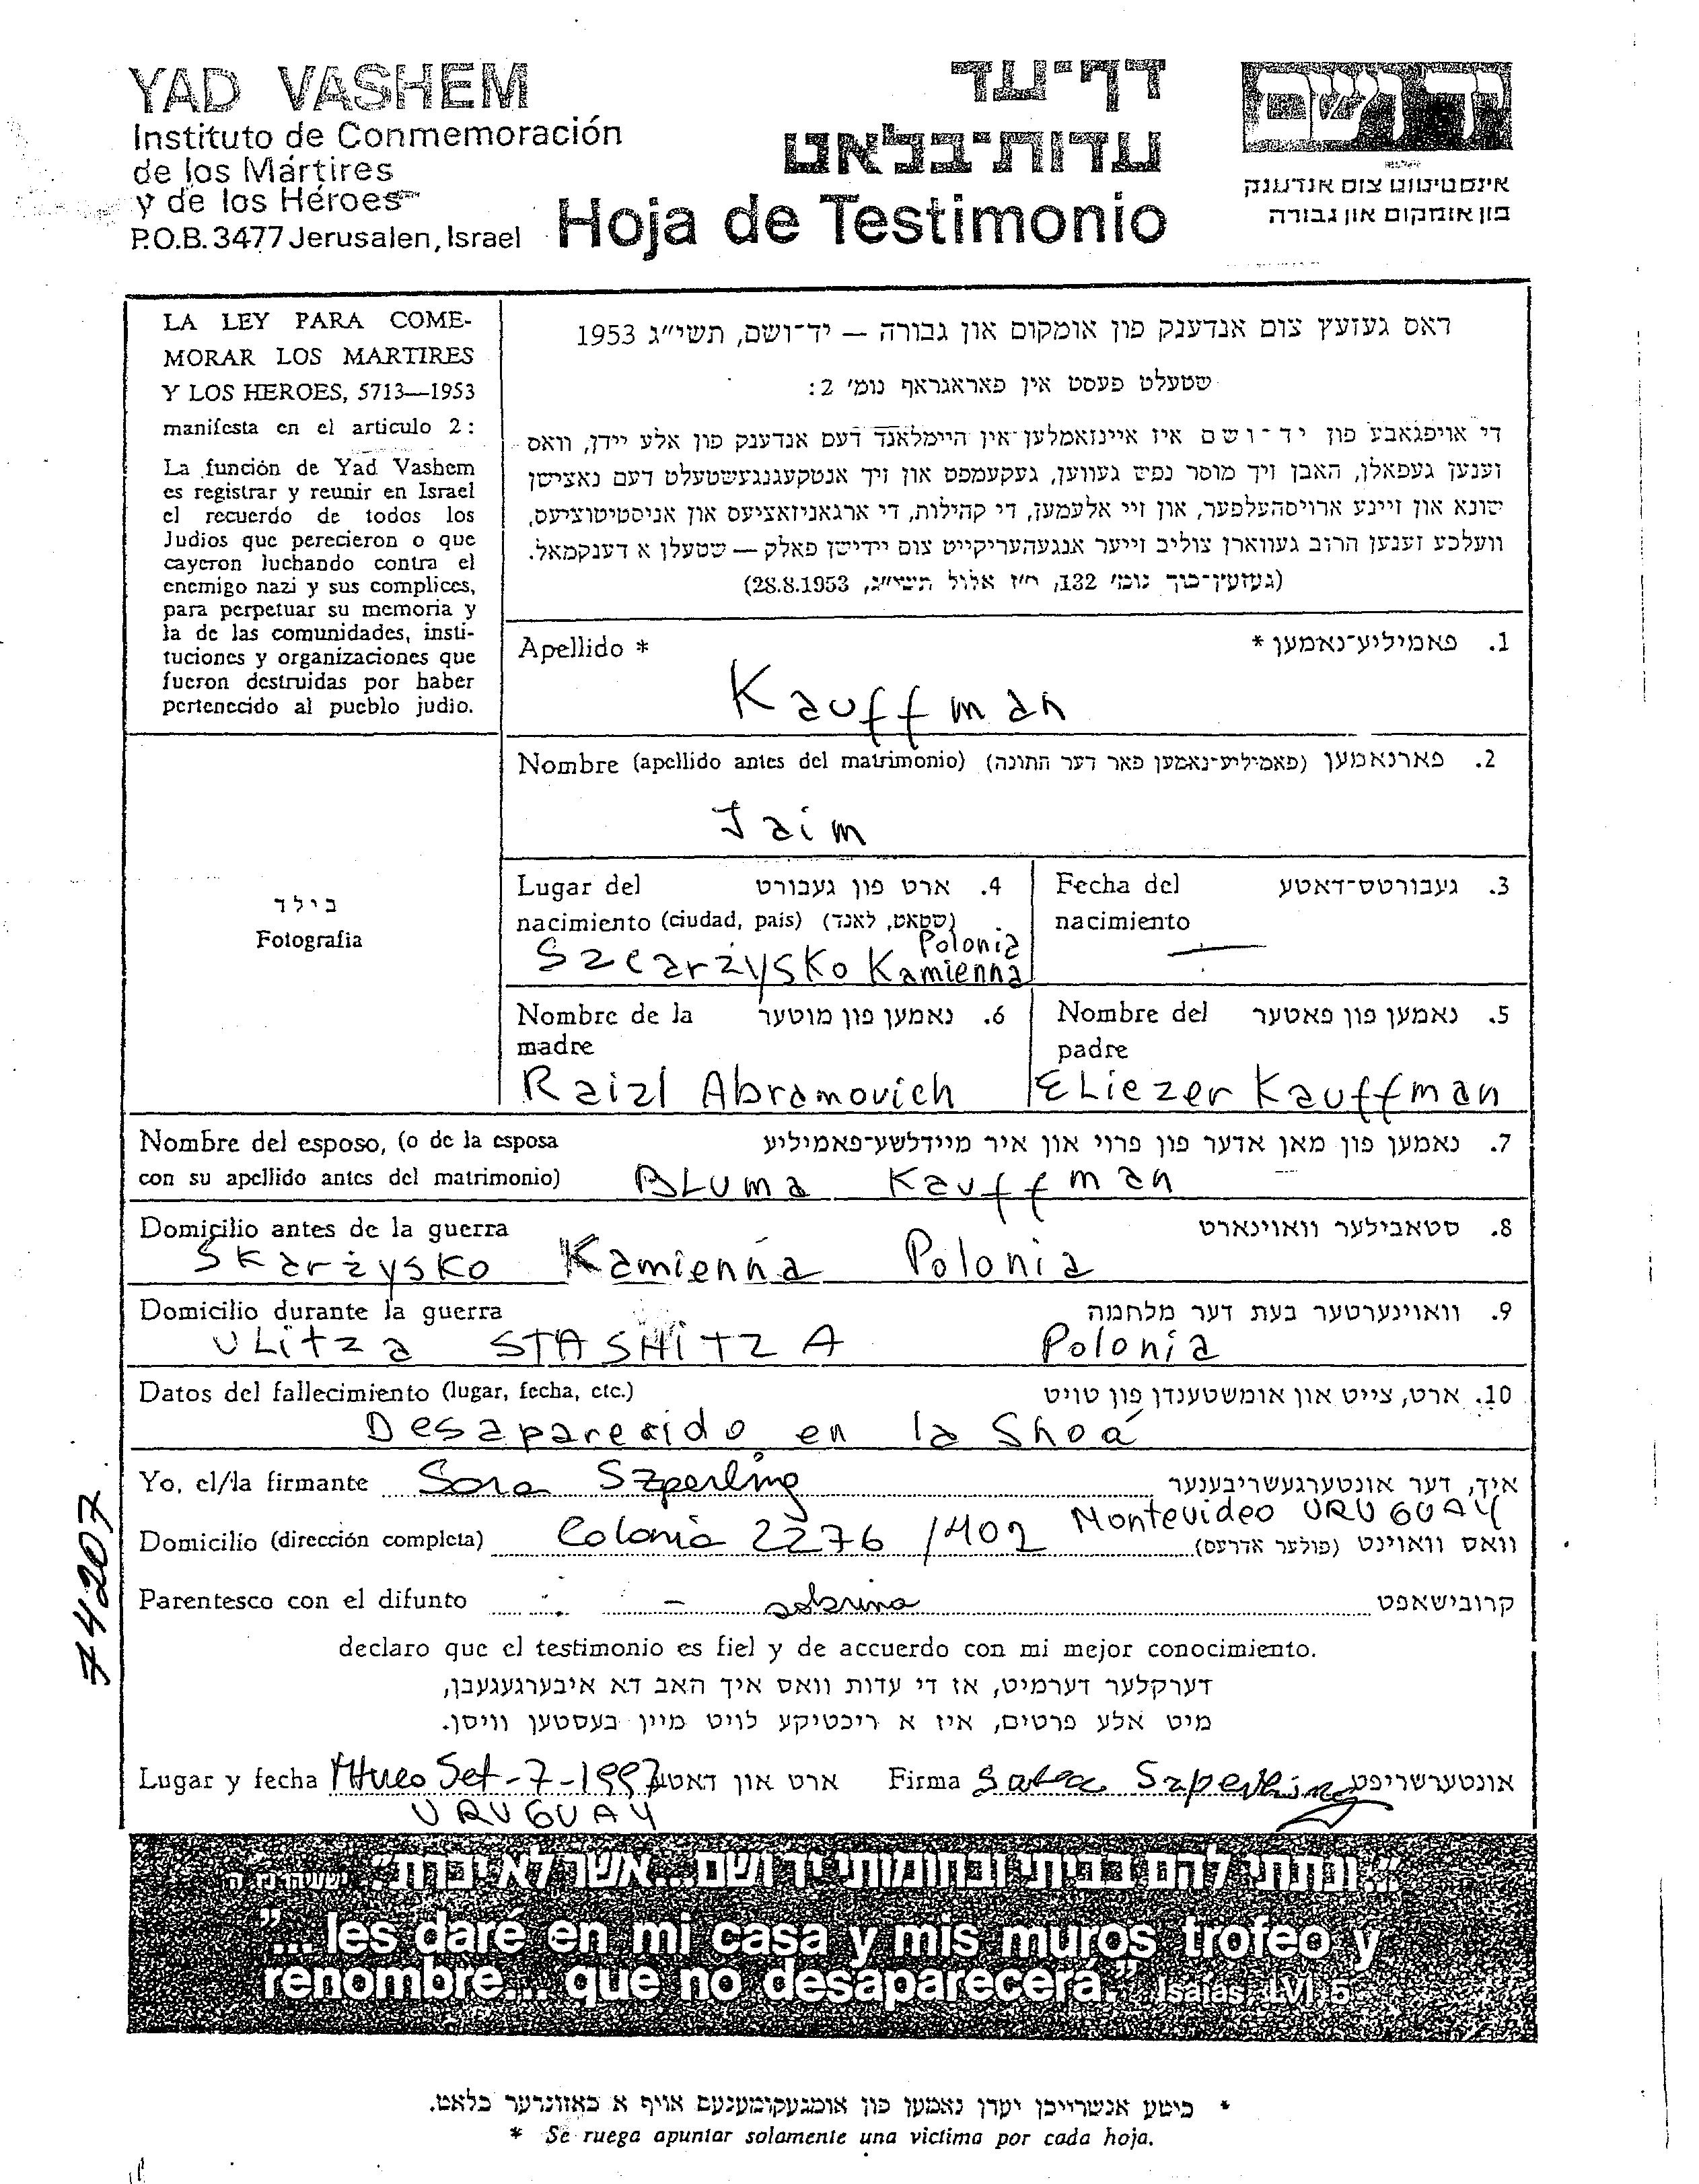 YAD VASHEM
Instituto de Conmemoración
de los Mártires
y de los Héroes
P.O.B. 3477 Jerusalen, Israel
דף־עד
עדות־בלאט
Hoja de Testimonio
יד ושם
אינסטיטוט צום אנדענק
פון אומקום און גבורה
LA LEY PARA COME-
MORAR LOS MARTIRES
Y LOS HEROES, 5713—1953
manifesta en el articulo 2:
La función de Yad Vashem
es registrar y reunir en Israel
el recuerdo de todos los
Judios que perecieron o que
cayeron luchando contra el
enemigo nazi y sus complices,
para perpetuar su memoria y
la de las comunidades, insti-
tuciones y organizaciones que
fueron destruidas por haber
pertenecido al pueblo judio.
דאס געזעץ צום אנדענק פון אומקום און גבורה — יד־ושם, תשי״ג 1953
שטעלט פעסט אין פאראגראף נומ׳ 2:
די אויפגאבע פון יד־ושם איז איינזאמלען אין היימלאנד דעם אנדענק פון אלע יידן, וואס
זענען געפאלן, האבן זיך מוסר נפש געווען, געקעמפט און זיך אנטקעגנגעשטעלט דעם נאצישן
שונא און זיינע ארויסהעלפער, און זיי אלעמען, די קהילות, די ארגאניזאציעס און אינסטיטוציעס,
וועלכע זענען חרוב געווארן צוליב זייער אנגעהעריקייט צום יידישן פאלק — שטעלן א דענקמאל.
(געזעץ־בוך נומ׳ 132, י״ז אלול תשי״ג, 28.8.1953)
Apellido * 1. פאמיליע־נאמען *
Kauffman
Nombre (apellido antes del matrimonio) 2. פארנאמען (פאמיליע־נאמען פאר דער חתונה)
Jaim
בילד
Fotografia
Lugar del 4. ארט פון געבורט
nacimiento (ciudad, pais) (שטאט, לאנד)
Polonia
Szcarżysko Kamienna
Fecha del 3. געבורטס־דאטע
nacimiento
—
Nombre de la 6. נאמען פון מוטער
madre
Raizl Abramovich
Nombre del 5. נאמען פון פאטער
padre
ELiezer Kauffman
Nombre del esposo, (o de la esposa 7. נאמען פון מאן אדער פון פרוי און איר מיידלשע־פאמיליע
con su apellido antes del matrimonio) BLuma Kauffman
Domicilio antes de la guerra 8. סטאבילער וואוינארט
Skarżysko Kamienna Polonia
Domicilio durante la guerra 9. וואוינערטער בעת דער מלחמה
ULitza STASHITZA Polonia
Datos del fallecimiento (lugar, fecha, etc.) 10. ארט, צייט און אומשטענדן פון טויט
Desaparecido en la Shoá
Yo, el/la firmante Sora Szperling איך, דער אונטערגעשריבענער
Montevideo URUGUAY
Domicilio (dirección completa) Colonia 2276 /402 וואס וואוינט (פולער אדרעס)
Parentesco con el difunto - sobrina קרובישאפט
declaro que el testimonio es fiel y de accuerdo con mi mejor conocimiento.
דערקלער דערמיט, אז די עדות וואס איך האב דא איבערגעגעבן,
מיט אלע פרטים, איז א ריכטיקע לויט מיין בעסטען וויסן.
Lugar y fecha Mtveo Set-7-1997 ארט און דאטע Firma Sara Szperling אונטערשריפט
URUGUAY
74207
"...ונתתי להם בביתי ובחומותי יד ושם...אשר לא יכרת" ישעיהו נו, ה׳
"...les daré en mi casa y mis muros trofeo y
renombre... que no desaparecerá." Isaías, LVI,5
* ביטע אנשרייבן יעדן נאמען פון אומגעקומענעם אויף א באזונדער בלאט.
* Se ruega apuntar solamente una victima por cada hoja.